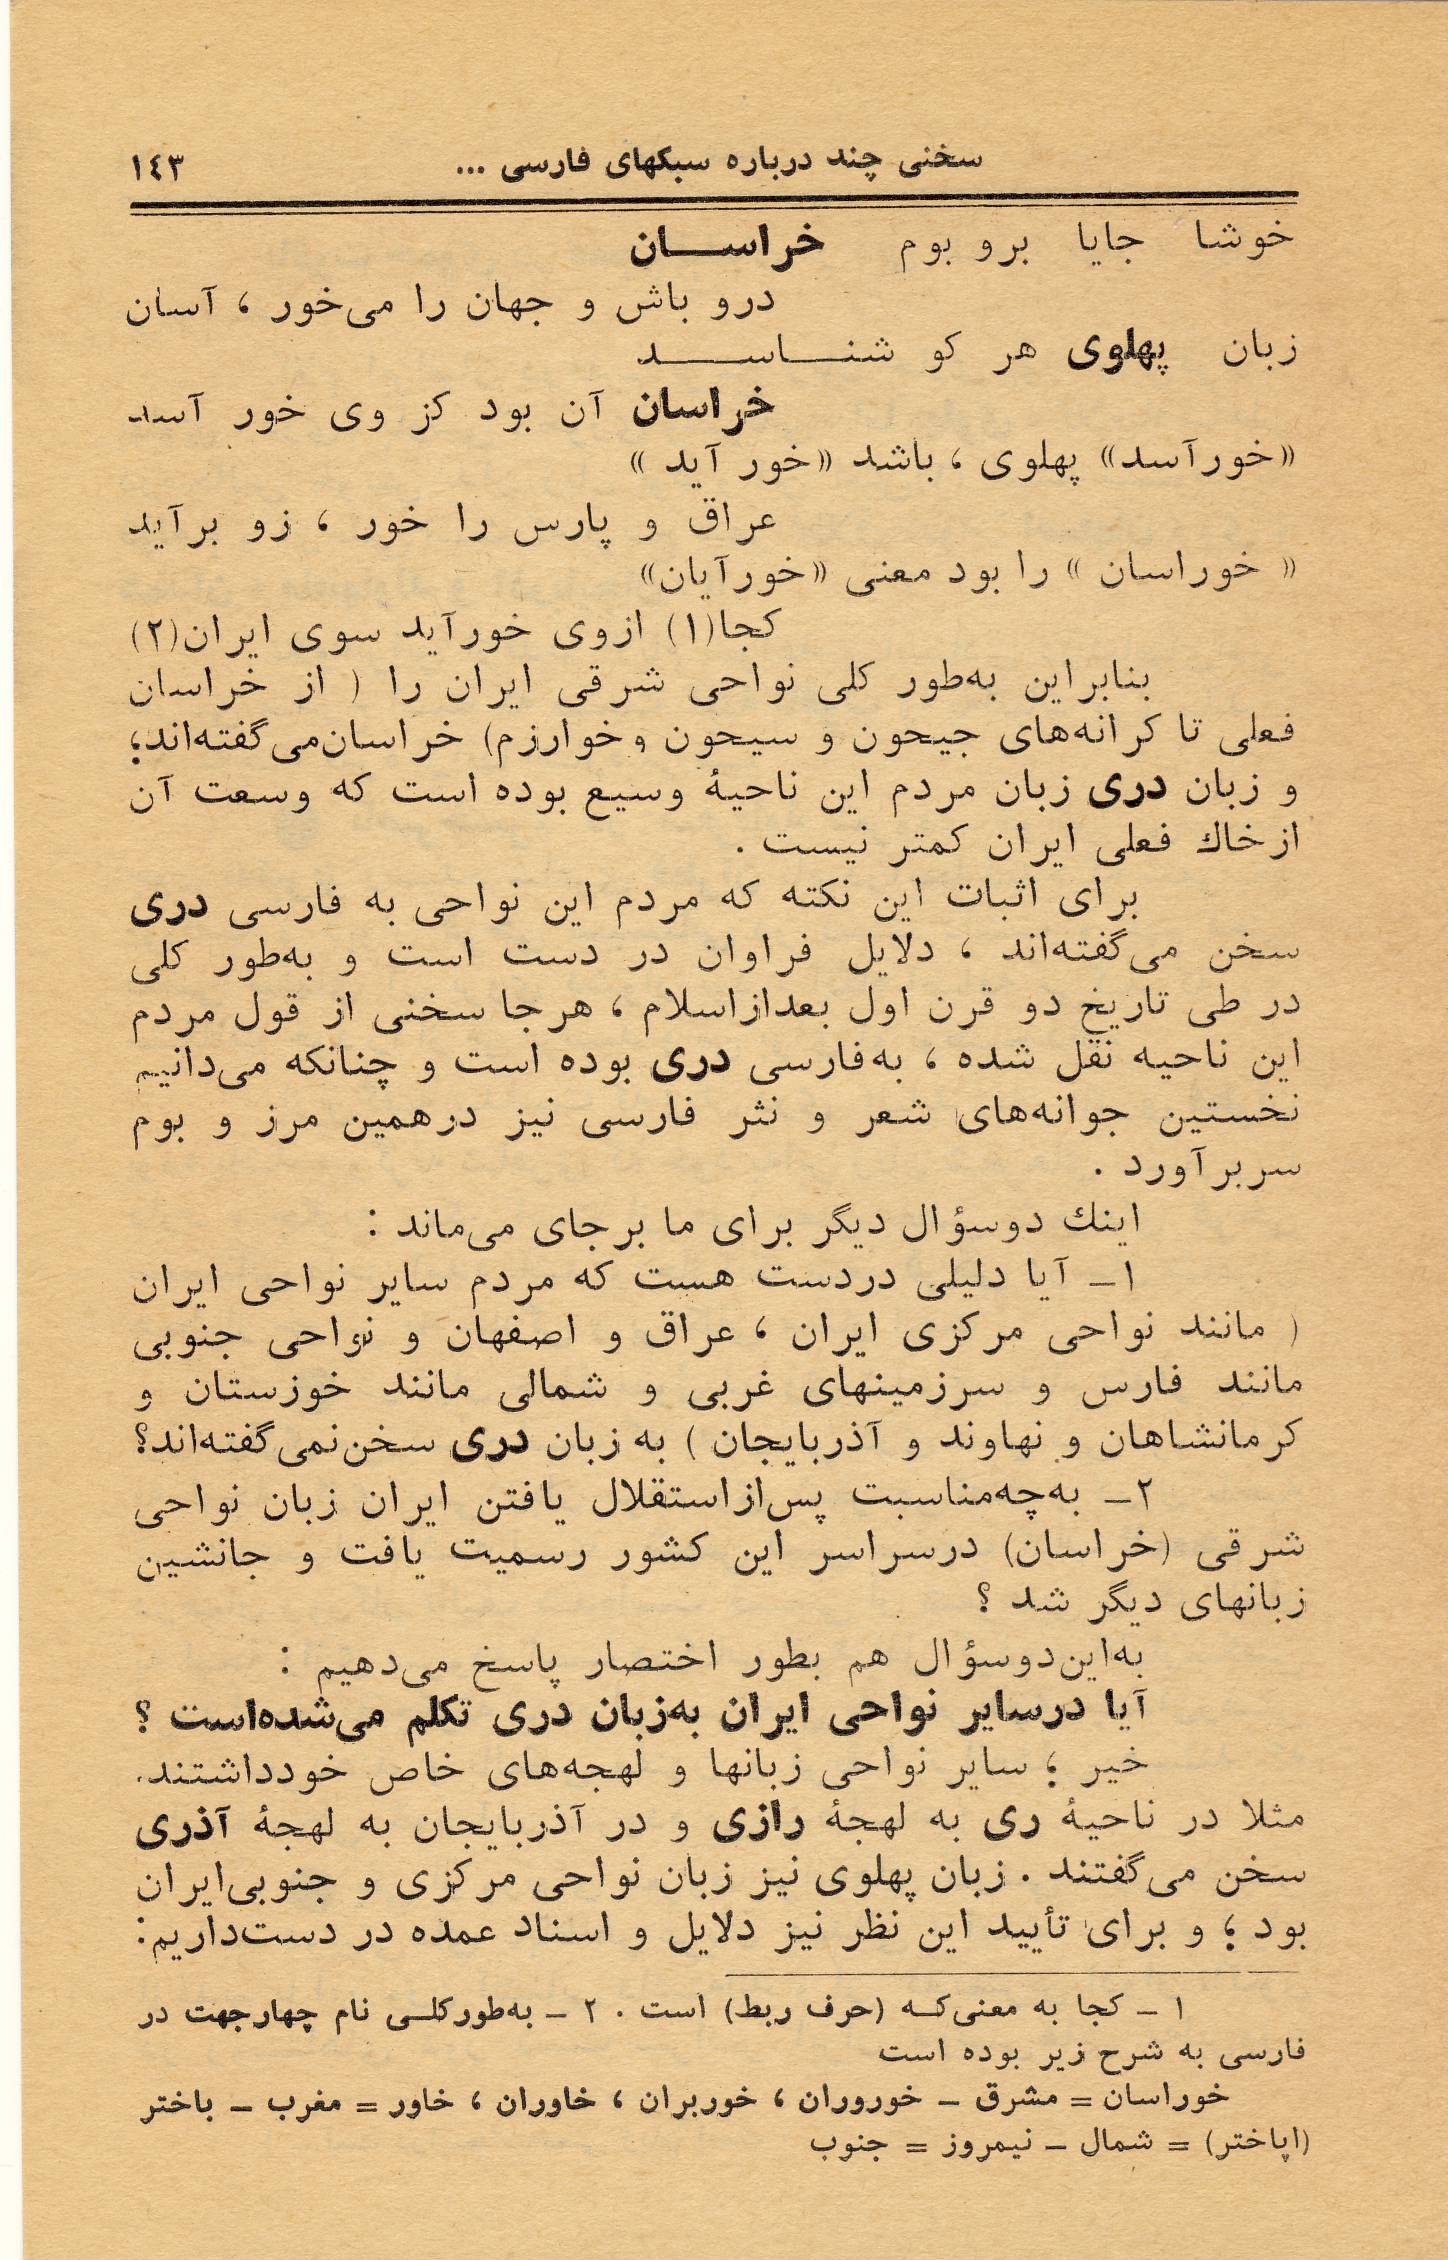 سخنی چند درباره سبکهای فارسی ...
١٤٣
خوشا جایا برو بوم خراســـان
درو باش و جهان را می‌خور ، آسان
زبان پهلوی هر کو شنـــاســـد
خراسان آن بود کز وی خور آسد
«خورآسد» پهلوی ، باشد «خور آید »
عراق و پارس را خور ، زو برآید
« خوراسان » را بود معنی «خورآیان»
کجا(١) ازوی خورآید سوی ایران(٢)
بنابراین به‌طور کلی نواحی شرقی ایران را ( از خراسان
فعلی تا کرانه‌های جیحون و سیحون و خوارزم) خراسان‌می‌گفته‌اند؛
و زبان دری زبان مردم این ناحیهٔ وسیع بوده است که وسعت آن
ازخاك فعلی ایران کمتر نیست .
برای اثبات این نکته که مردم این نواحی به فارسی دری
سخن می‌گفته‌اند ، دلایل فراوان در دست است و به‌طور کلی
در طی تاریخ دو قرن اول بعدازاسلام ، هرجا سخنی از قول مردم
این ناحیه نقل شده ، به‌فارسی دری بوده است و چنانکه می‌دانیم
نخستین جوانه‌های شعر و نثر فارسی نیز درهمین مرز و بوم
سربرآورد .
اینك دوسؤال دیگر برای ما برجای می‌ماند :
١ـ آیا دلیلی دردست هست که مردم سایر نواحی ایران
( مانند نواحی مرکزی ایران ، عراق و اصفهان و نواحی جنوبی
مانند فارس و سرزمینهای غربی و شمالی مانند خوزستان و
کرمانشاهان و نهاوند و آذربایجان ) به زبان دری سخن‌نمی‌گفته‌اند؟
٢ـ به‌چه‌مناسبت پس‌ازاستقلال یافتن ایران زبان نواحی
شرقی (خراسان) درسراسر این کشور رسمیت یافت و جانشین
زبانهای دیگر شد ؟
به‌این‌دوسؤال هم بطور اختصار پاسخ می‌دهیم :
آیا درسایر نواحی ایران به‌زبان دری تکلم می‌شده‌است ؟
خیر ؛ سایر نواحی زبانها و لهجه‌های خاص خودداشتند.
مثلا در ناحیهٔ ری به لهجهٔ رازی و در آذربایجان به لهجهٔ آذری
سخن می‌گفتند . زبان پهلوی نیز زبان نواحی مرکزی و جنوبی‌ایران
بود ؛ و برای تأیید این نظر نیز دلایل و اسناد عمده در دست‌داریم:
١ ـ کجا به معنی‌کـه (حرف ربط) است . ٢ ـ به‌طورکلـی نام چهارجهت در
فارسی به شرح زیر بوده است
خوراسان = مشرق ـ خوروران ، خوربران ، خاوران ، خاور = مغرب ـ باختر
(اپاختر) = شمال ـ نیمروز = جنوب